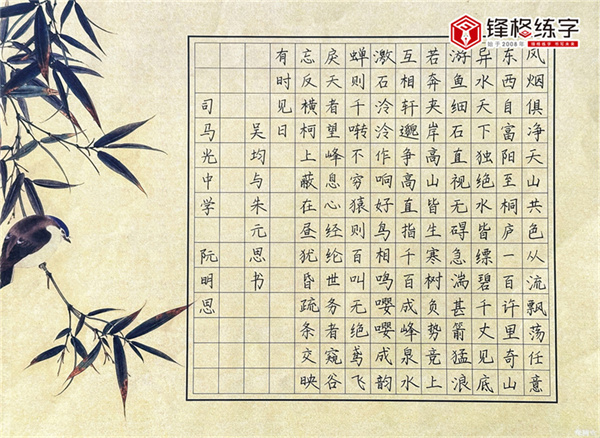 锋格练字
始于2008年
风烟俱净天山共色从流飘荡任意
东西自富阳至桐庐一百许里奇山
异水天下独绝水皆缥碧千丈见底
游鱼细石直视无碍急湍甚箭猛浪
若奔夹岸高山皆生寒树负势竞上
互相轩邈争高直指千百成峰泉水
激石泠泠作响好鸟相鸣嘤嘤成韵
蝉则千啭不穷猿则百叫无绝鸢飞
戾天者望峰息心经纶世务者窥谷
忘反横柯上蔽在昼犹昏疏条交映
有时见日
吴均与朱元思书
司马光中学 阮明思